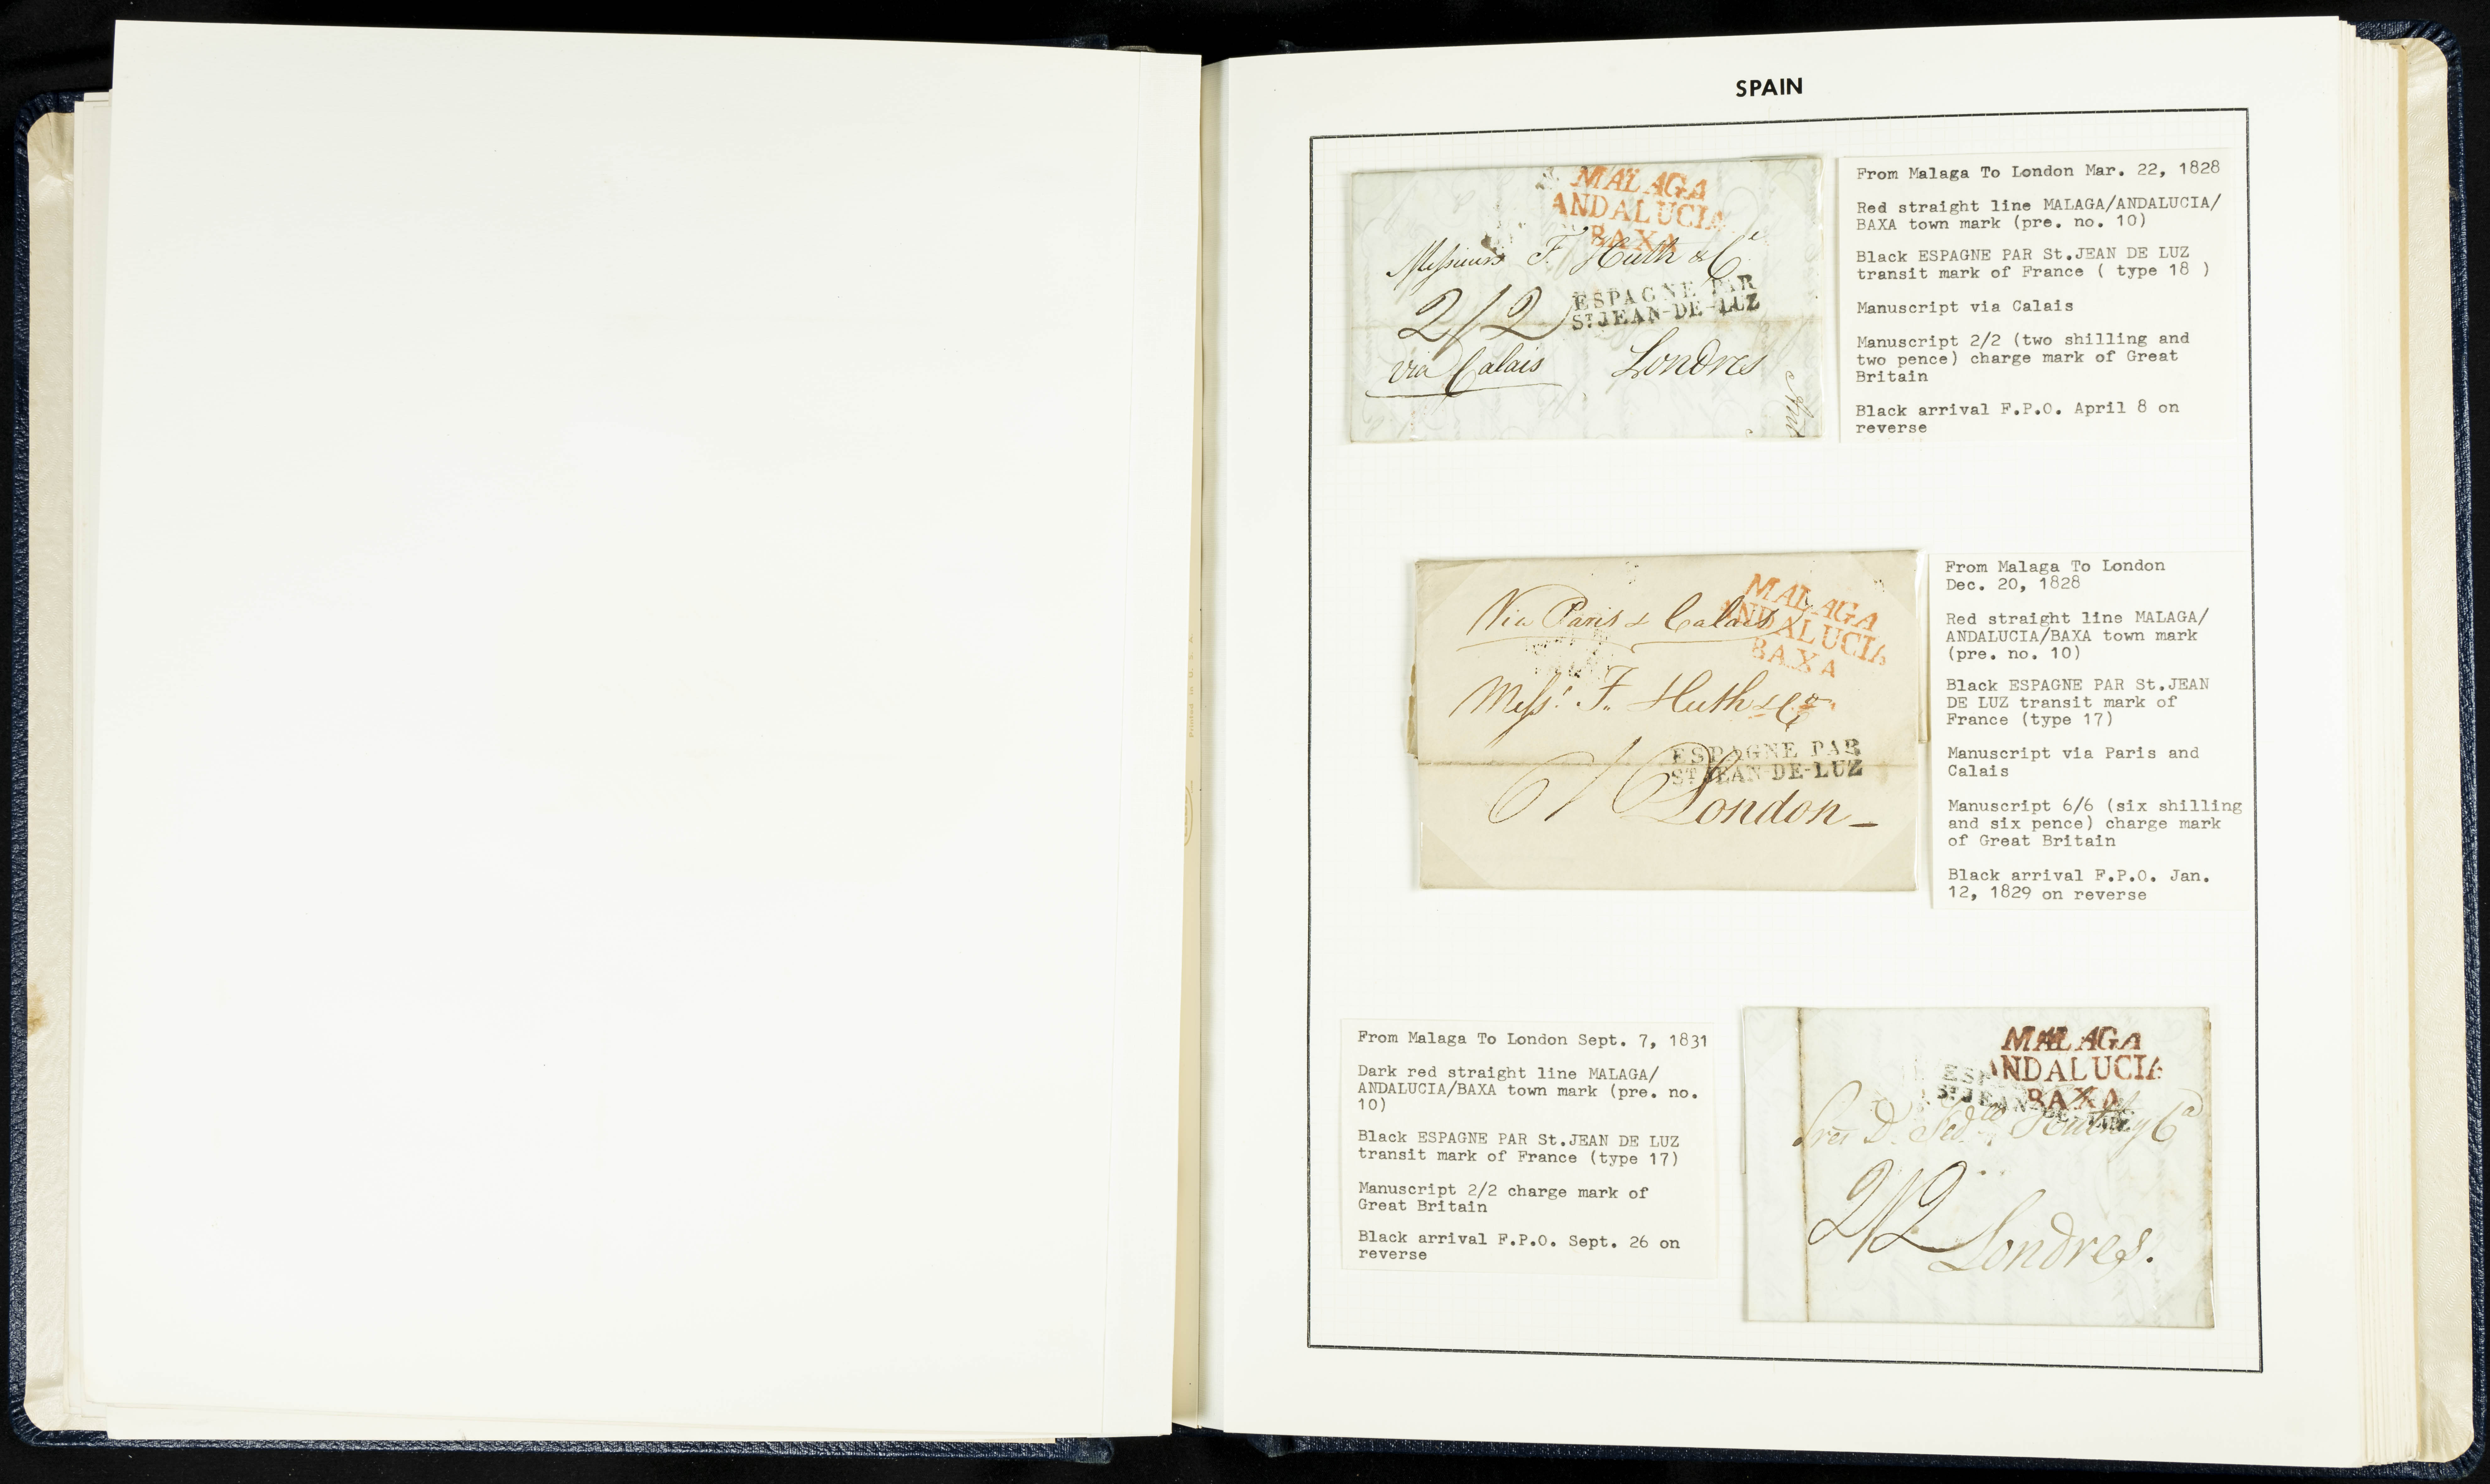 SPAIN
MALAGA
ANDALUCIA
BAXA
Messieurs F. Huth & Cº
ESPAGNE PAR
ST JEAN-DE-LUZ
2/2
via Calais Londres
From Malaga To London Mar. 22, 1828
Red straight line MALAGA/ANDALUCIA/
BAXA town mark (pre. no. 10)
Black ESPAGNE PAR St.JEAN DE LUZ
transit mark of France ( type 18 )
Manuscript via Calais
Manuscript 2/2 (two shilling and
two pence) charge mark of Great
Britain
Black arrival F.P.O. April 8 on
reverse
MALAGA
ANDALUCIA
BAXA
Via Paris & Calais
Messrs F. Huth & Co
ESPAGNE PAR
ST JEAN-DE-LUZ
6/6
London
From Malaga To London
Dec. 20, 1828
Red straight line MALAGA/
ANDALUCIA/BAXA town mark
(pre. no. 10)
Black ESPAGNE PAR St.JEAN
DE LUZ transit mark of
France (type 17)
Manuscript via Paris and
Calais
Manuscript 6/6 (six shilling
and six pence) charge mark
of Great Britain
Black arrival F.P.O. Jan.
12, 1829 on reverse
From Malaga To London Sept. 7, 1831
Dark red straight line MALAGA/
ANDALUCIA/BAXA town mark (pre. no.
10)
Black ESPAGNE PAR St.JEAN DE LUZ
transit mark of France (type 17)
Manuscript 2/2 charge mark of
Great Britain
Black arrival F.P.O. Sept. 26 on
reverse
MALAGA
ANDALUCIA
BAXA
ST JEAN
2/2
Londres.